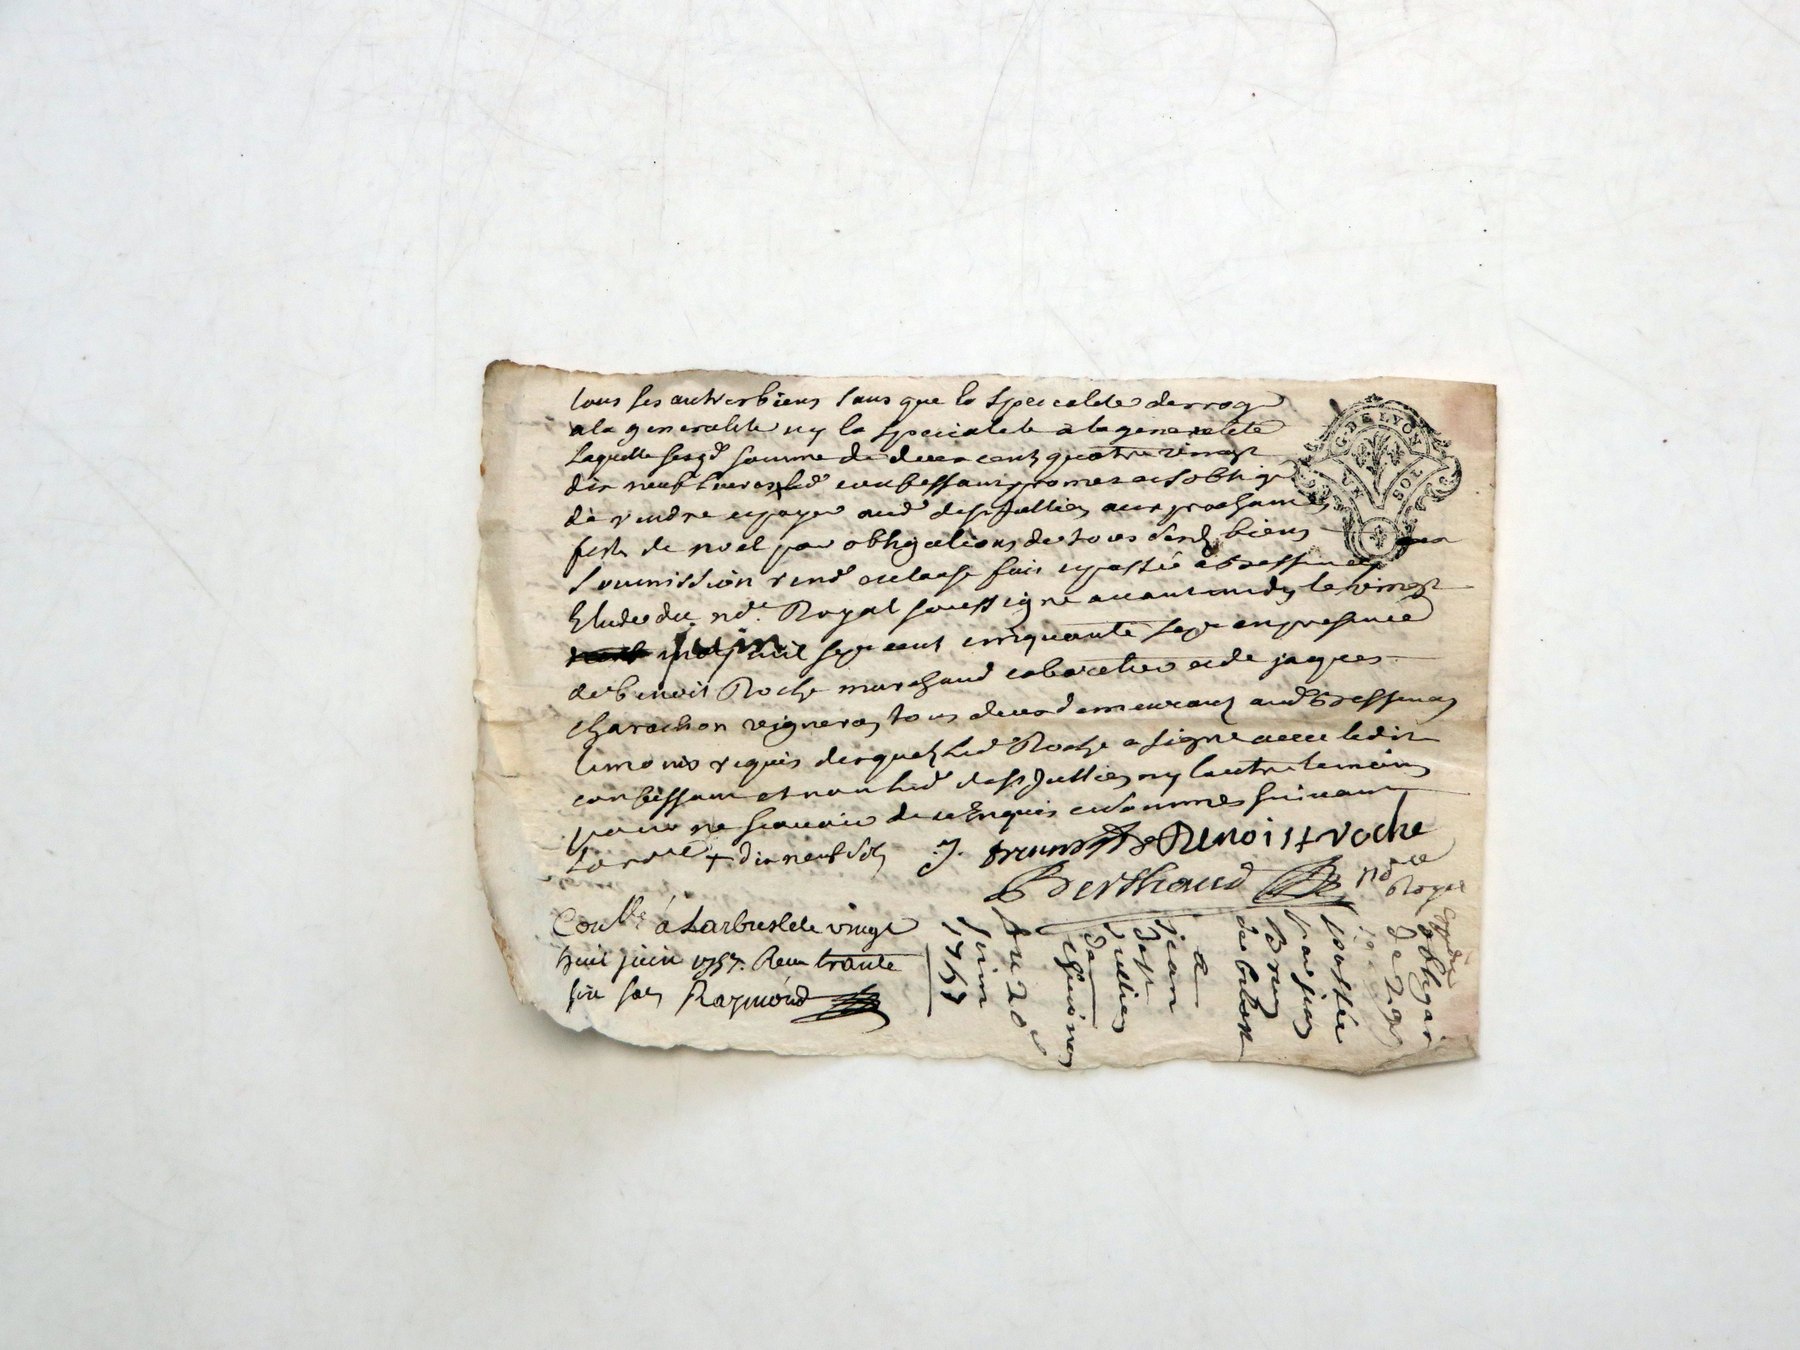 tous ses autres biens sans que la specialité deroge
a la generalité ny la specialité a la generalité
laquelle susd somme de deux cent quatre vingt
dix neuf livres led confessant promet et s'oblige
de rendre et payer aud desp Jullien aux prochaines
feste de noel par obligations de tous sesd biens
soumission rend et clause fait et passé a Bessenay
Etude du nore Royal soussigné avant midy le vingt
juin mil sept cent cinquante sept en presence
de benoit Roche marchand cabaretier et de jaques
charachon vigneron tous deux demeurant aud Bessenay
temoins requis desquels led Roche a signé avec ledit
confessant et non led desp Jullien ny l'autre temoin
pour ne sçavoir de ce Enquis et sommes suivant
+ dix neuf sols J. brun Benoist roche
Berthaud nore Royal
Conllé à Larbresle le vingt
huit juin 1757. Reçu trante
six sols Raymond
G. DE LYON
UN SOL
Expédié
obligaõn
de 299
passée
par jean
Brun
a
jean
desp
Jullien
de
du 20e
juin
1757